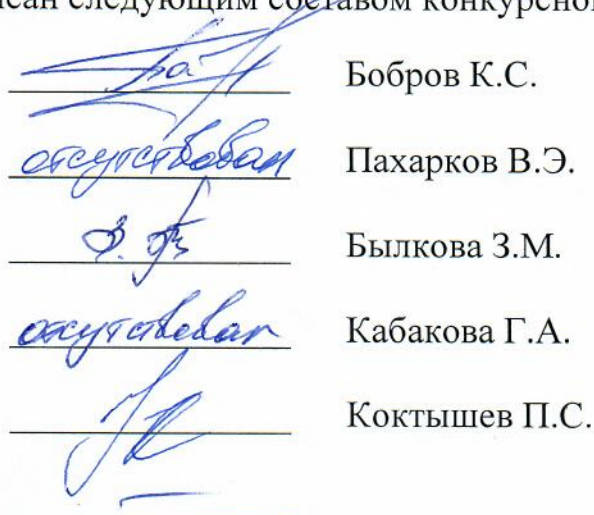 сан следующим составом конкурсно
Бобров К.С.
отсутствовал Пахарков В.Э.
Былкова З.М.
отсутствовал Кабакова Г.А.
Коктышев П.С.